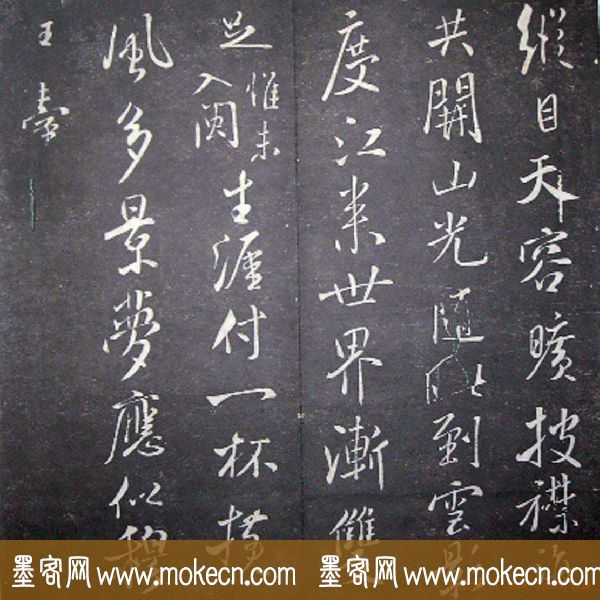 縱目天容曠披襟海
共開山光隨眺到雲影
度江來世界漸雙
足惟未入閩生涯付一杯横
風多景夢應似穆
王臺
墨客网 www.mokecn.com 墨客网 www.mokecn.com